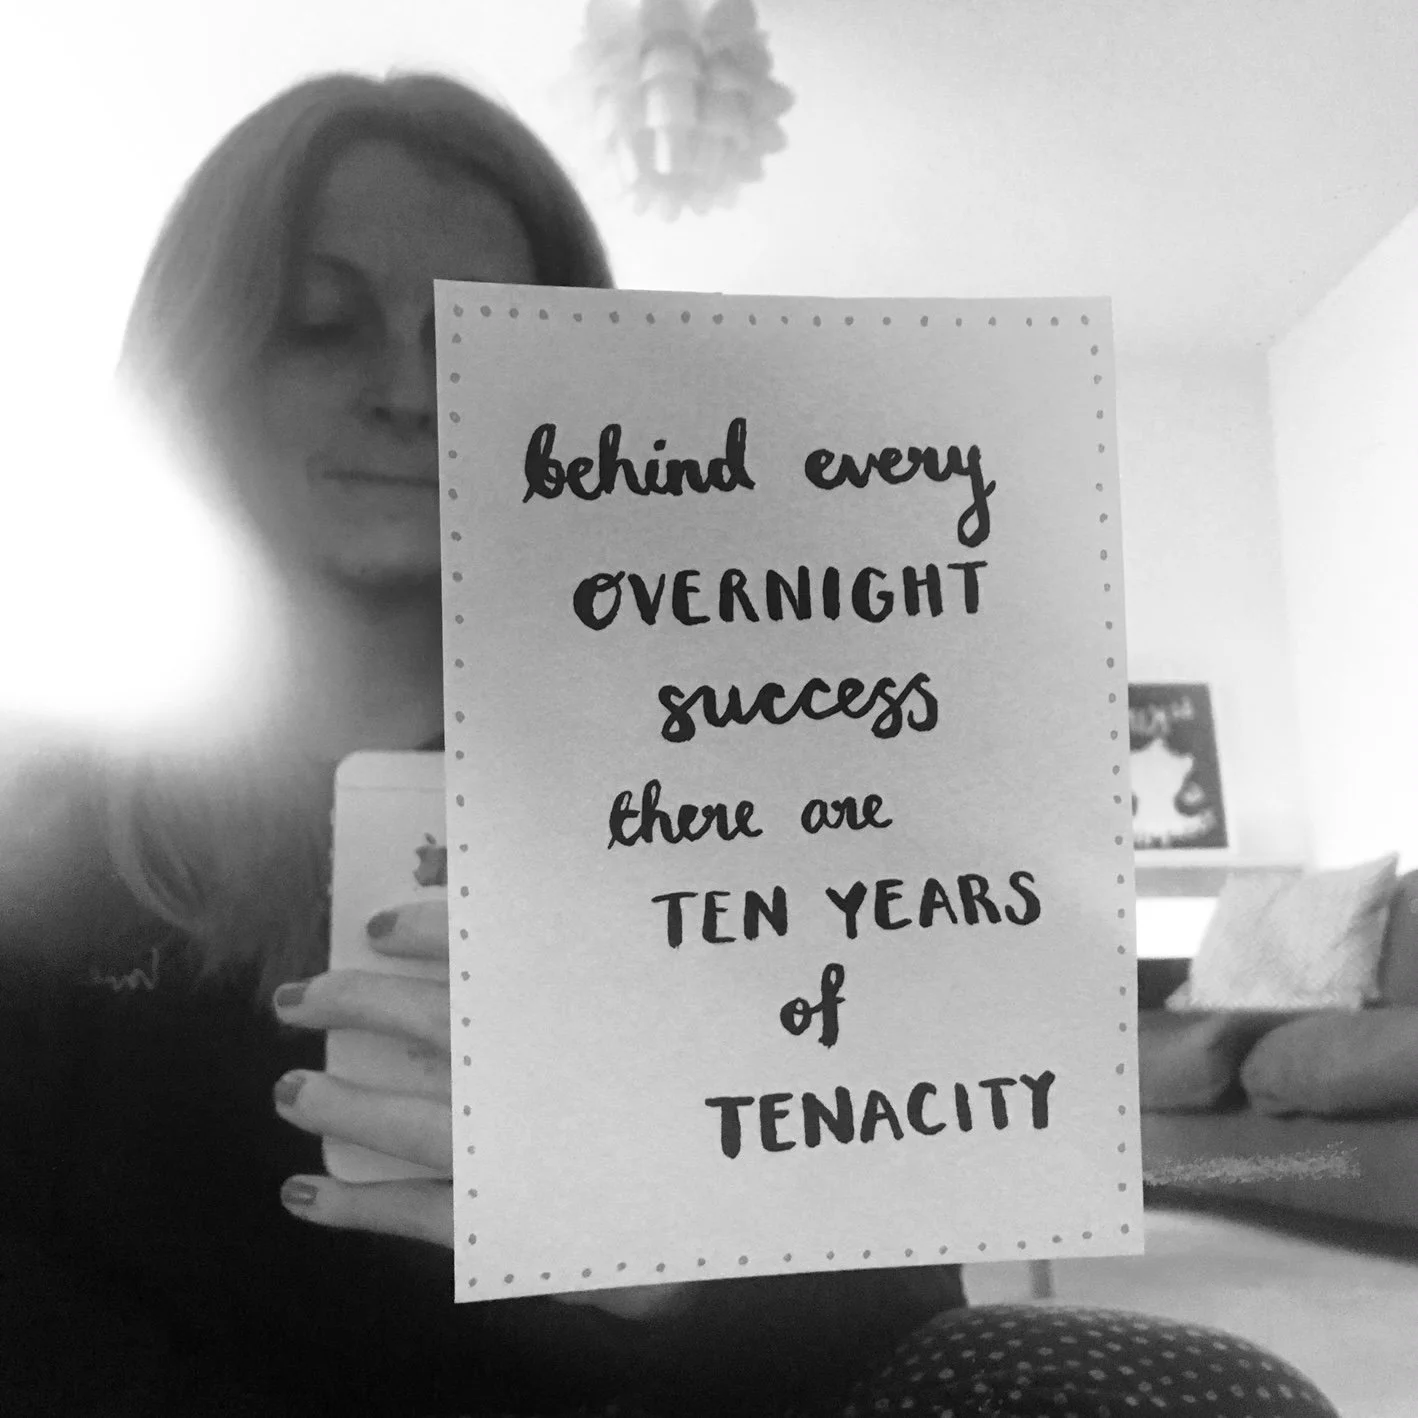 behind every
OVERNIGHT
success
there are
TEN YEARS
of
TENACITY